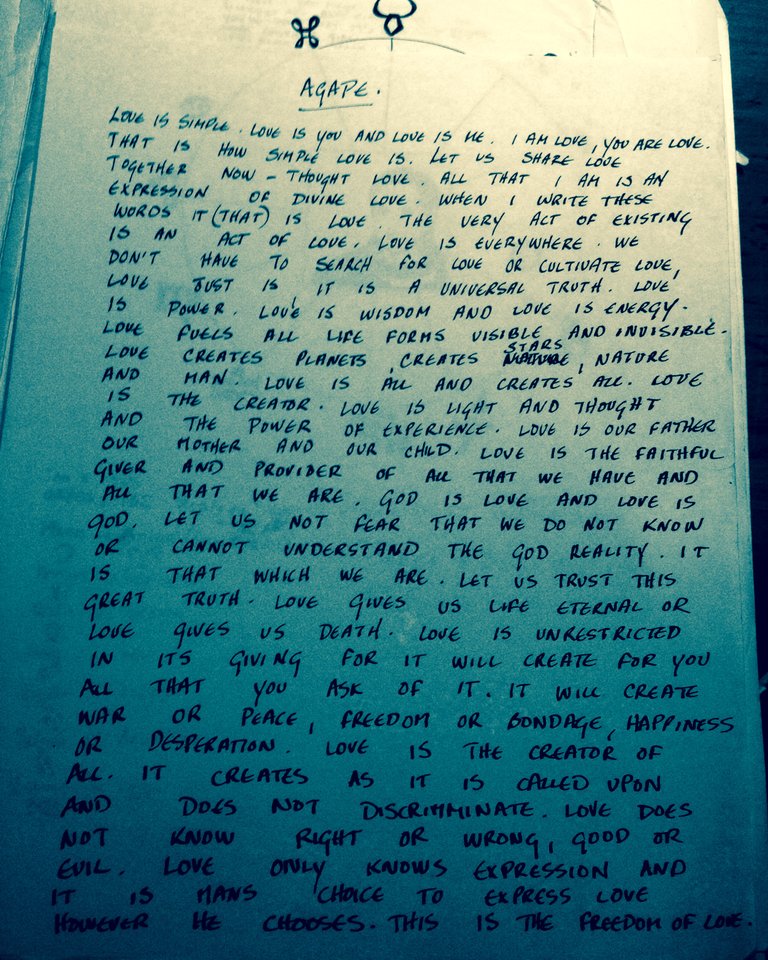 AGAPE.
LOVE IS SIMPLE. LOVE IS YOU AND LOVE IS ME. I AM LOVE, YOU ARE LOVE.
THAT IS HOW SIMPLE LOVE IS. LET US SHARE LOVE
TOGETHER NOW - THOUGHT LOVE. ALL THAT I AM IS AN
EXPRESSION OF DIVINE LOVE. WHEN I WRITE THESE
WORDS IT (THAT) IS LOVE. THE VERY ACT OF EXISTING
IS AN ACT OF LOVE. LOVE IS EVERYWHERE. WE
DON'T HAVE TO SEARCH FOR LOVE OR CULTIVATE LOVE,
LOVE JUST IS, IT IS A UNIVERSAL TRUTH. LOVE
IS POWER. LOVE IS WISDOM AND LOVE IS ENERGY.
LOVE FUELS ALL LIFE FORMS VISIBLE AND INVISIBLE.
LOVE CREATES PLANETS, CREATES STARS, NATURE
AND MAN. LOVE IS ALL AND CREATES ALL. LOVE
IS THE CREATOR. LOVE IS LIGHT AND THOUGHT
AND THE POWER OF EXPERIENCE. LOVE IS OUR FATHER
OUR MOTHER AND OUR CHILD. LOVE IS THE FAITHFUL
GIVER AND PROVIDER OF ALL THAT WE HAVE AND
ALL THAT WE ARE. GOD IS LOVE AND LOVE IS
GOD. LET US NOT FEAR THAT WE DO NOT KNOW
OR CANNOT UNDERSTAND THE GOD REALITY. IT
IS THAT WHICH WE ARE. LET US TRUST THIS
GREAT TRUTH. LOVE GIVES US LIFE ETERNAL OR
LOVE GIVES US DEATH. LOVE IS UNRESTRICTED
IN ITS GIVING FOR IT WILL CREATE FOR YOU
ALL THAT YOU ASK OF IT. IT WILL CREATE
WAR OR PEACE, FREEDOM OR BONDAGE, HAPPINESS
OR DESPERATION. LOVE IS THE CREATOR OF
ALL. IT CREATES AS IT IS CALLED UPON
AND DOES NOT DISCRIMMINATE. LOVE DOES
NOT KNOW RIGHT OR WRONG, GOOD OR
EVIL. LOVE ONLY KNOWS EXPRESSION AND
IT IS MANS CHOICE TO EXPRESS LOVE
HOWEVER HE CHOOSES. THIS IS THE FREEDOM OF LOVE.